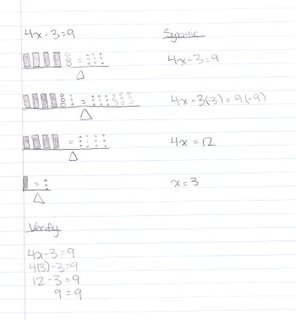 4x-3=9
Symbolic
=
4x-3=9
=
4x-3(3)=9(-9)
=
4x=12
=
x=3
Verify
4x-3=9
4(3)-3=9
12-3=9
9=9